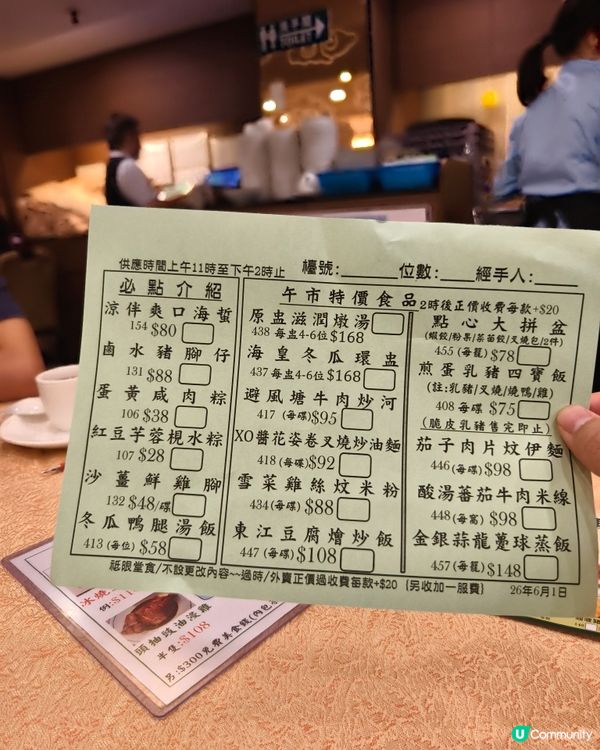 供應時間上午11時至下午2時止 檯號:______ 位數:____ 經手人:____
必點介紹
涼伴爽口海蜇
154 $80
鹵水豬腳仔
131 $88
蛋黃咸肉粽
106 $38
紅豆芋蓉梘水粽
107 $28
沙薑鮮雞腳
132 $48/碟
冬瓜鴨腿湯飯
413 (每位) $58
午市特價食品 2時後正價收費每款+$20
原盅滋潤燉湯
438 每盅4-6位 $168
海皇冬瓜環盅
437 每盅4-6位 $168
避風塘牛肉炒河
417 (每碟) $95
XO醬花姿卷叉燒炒油麵
418 (每碟) $92
雪菜雞絲炆米粉
434 (每碟) $88
東江豆腐燴炒飯
447 (每碟) $108
點心大拼盆
(蝦餃/粉果/菜苗餃/叉燒包/2件)
455 (每籠) $78
煎蛋乳豬四寶飯
(註:乳豬/叉燒/燒鴨/雞)
408 每碟 $75
(脆皮乳豬售完即止)
茄子肉片炆伊麵
446 (每碟) $98
酸湯番茄牛肉米線
448 (每窩) $98
金銀蒜龍躉球蒸飯
457 (每籠) $148
祗限堂食/不設更改內容~~過時/外賣正價過收費每款+$20 {另收加一服費} 26年6月1日
冰燒
例:$11
頭抽豉油浸雞
半隻:$108
另:$300免費美食錢(內包
U Community